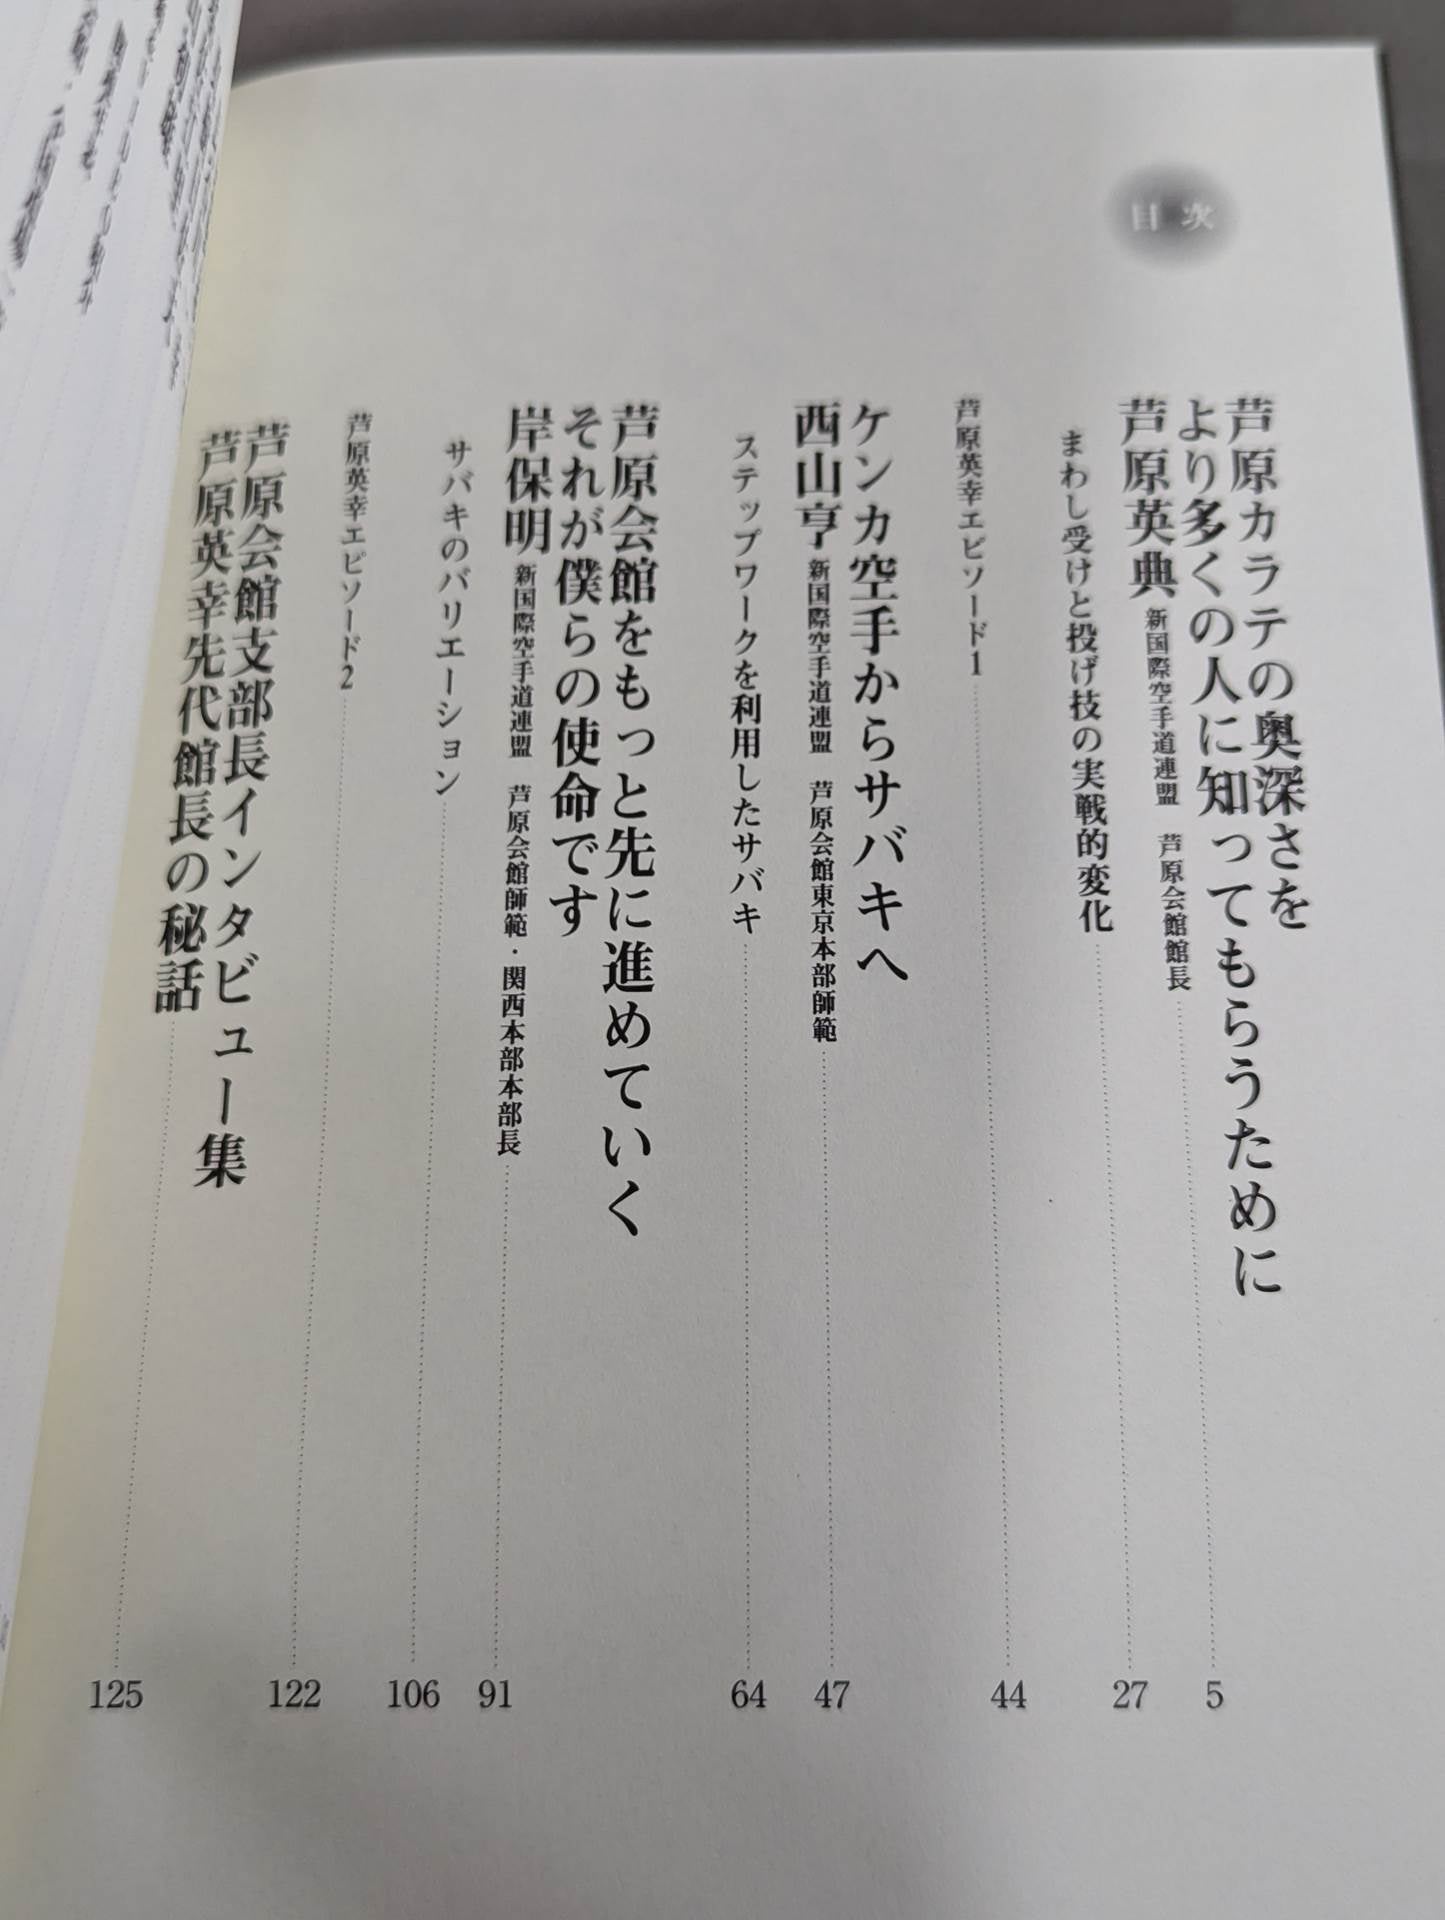 目次
芦原カラテの奥深さを
より多くの人に知ってもらうために
芦原英典 新国際空手道連盟 芦原会館館長 5
まわし受けと投げ技の実戦的変化 27
芦原英幸エピソード1 44
ケンカ空手からサバキへ
西山亨 新国際空手道連盟 芦原会館東京本部師範 47
ステップワークを利用したサバキ 64
芦原会館をもっと先に進めていく
それが僕らの使命です
岸保明 新国際空手道連盟 芦原会館師範・関西本部本部長 91
サバキのバリエーション 106
芦原英幸エピソード2 122
芦原会館支部長インタビュー集
芦原英幸先代館長の秘話 125